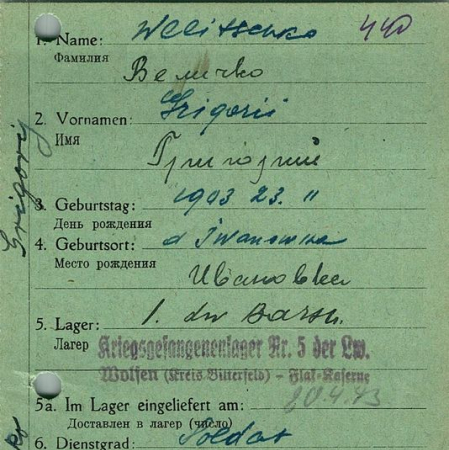 1. Name: Welitschko 440
Фамилия
Величко
2. Vornamen: Grigorii
Имя
Григорий
Grigorij
3. Geburtstag: 1903 23. 11
День рождения
4. Geburtsort: d Iwanowka
Место рождения
Ивановка
5. Lager:
Лагер
Kriegsgefangenenlager Nr. 5 der Lw.
Wolfen (Kreis Bitterfeld) – Flak-Kaserne
5a. Im Lager eingeliefert am:
Доставлен в лагер (число)
6. Dienstgrad: Soldat